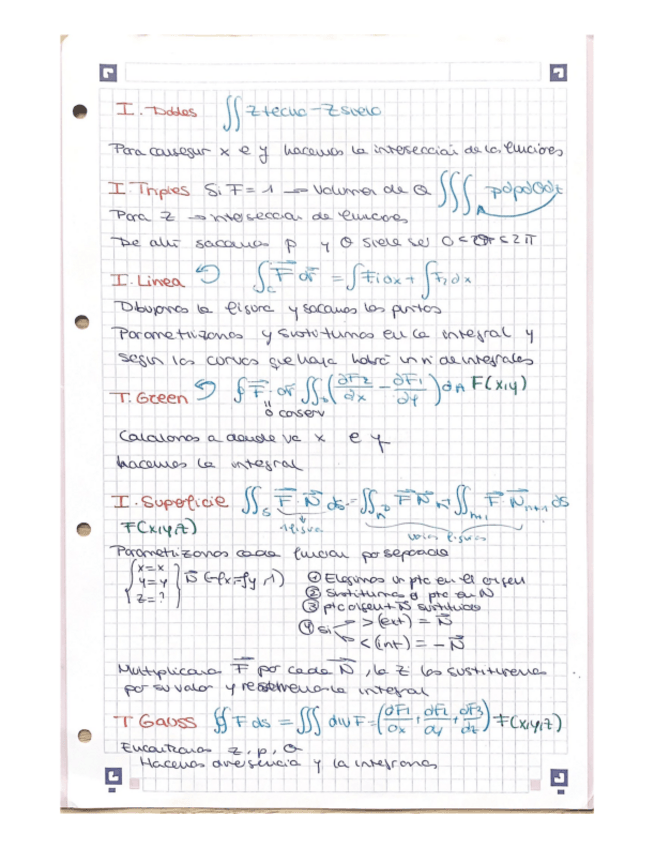 I. Dobles ∬ z techo - z suelo
Para conseguir x e y hacemos la intersección de las funciones
I. Triples Si F = 1 → volumen de Q ∭ ρdρdθdz
Para z → intersección de funciones
De ahí sacamos ρ y θ suele ser 0 ≤ θ ≤ 2π
I. Linea ∫c F⃗ dr⃗ = ∫F₁dx + ∫F₂dx
Dibujamos la figura y sacamos los puntos
Parametrizamos y sustituimos en la integral y
según las curvas que haya habrá un nº de integrales
T. Green ∮ F⃗ · dr⃗ ∬D (∂F2/∂x - ∂F1/∂y) dA F(x,y)
0 conserv
Calculamos a donde va x e y
hacemos la integral
I. Superficie ∬s F⃗ · N⃗ ds = ∬ F⃗ N⃗ ∬ F⃗ · N⃗n+1 ds
F(x,y,z) 1 figura varias figuras
Parametrizamos cada funcion por separado
{x=x y=y z=?} N⃗ (-fx, -fy, 1)
① Elegimos un pto en el origen
② Sustituimos el pto en N
③ pto origen + N⃗ sustituido
④ si > (ext) = N⃗
< (int) = - N⃗
Multiplicara F⃗ por cada N⃗, la z las sustituiremos
por su valor y resolvemos la integral
T Gauss ∯ F ds = ∭ div F = (∂F1/∂x + ∂F2/∂y + ∂F3/∂z) F(x,y,z)
Encontramos z, ρ, θ
Hacemos divergencia y la integramos